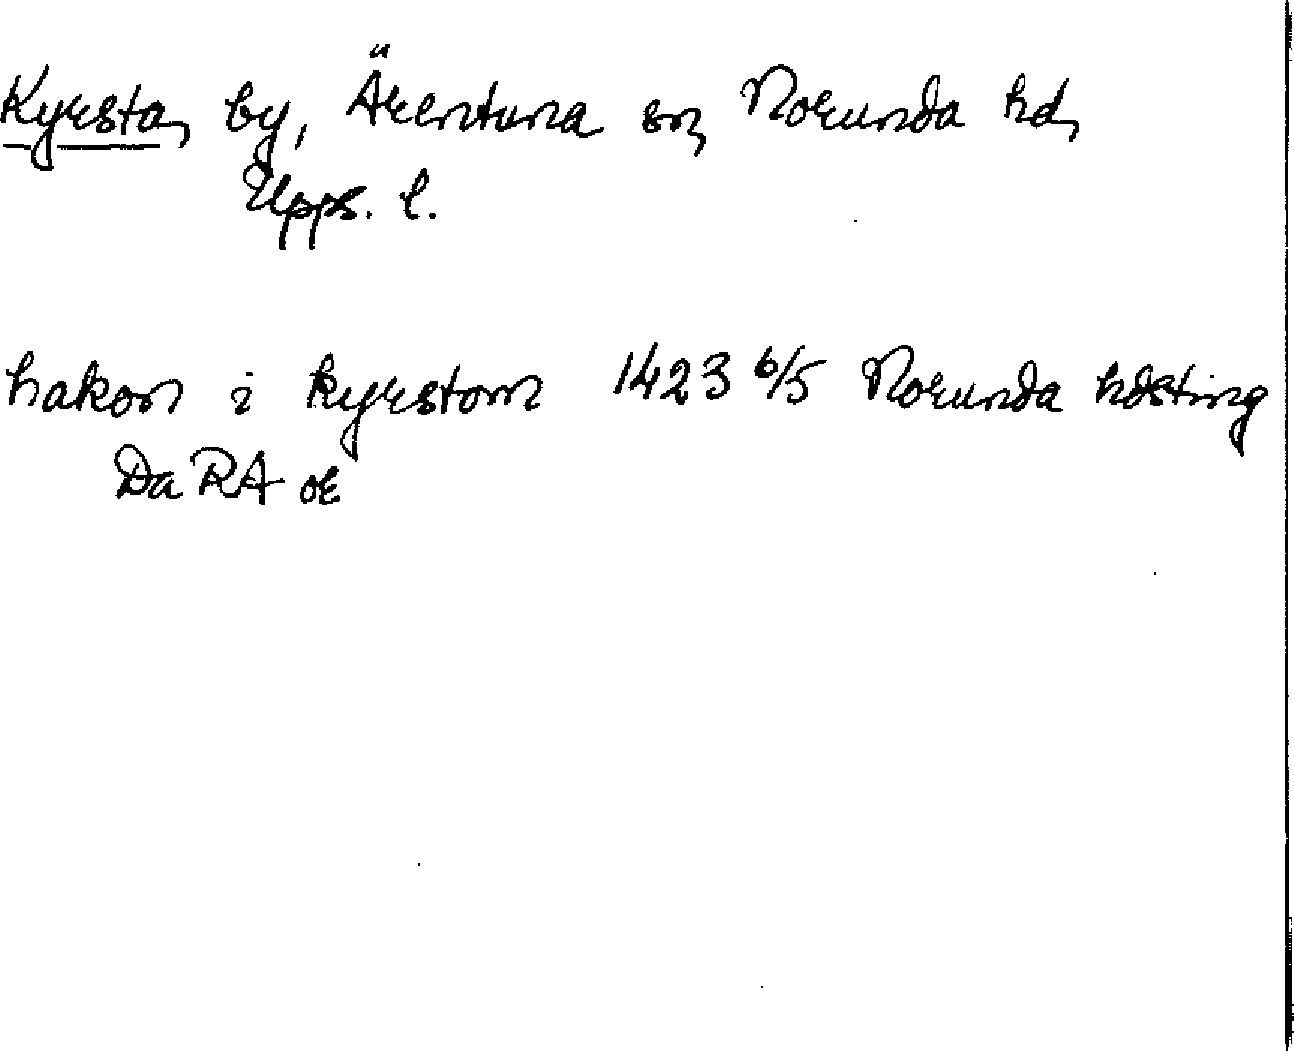 Kyrsta, by, Ärentuna sn, Norunda hd,
Upps. l.
hakon i kyrstom 1423 6/5 Norunda hdsting
Da RA or